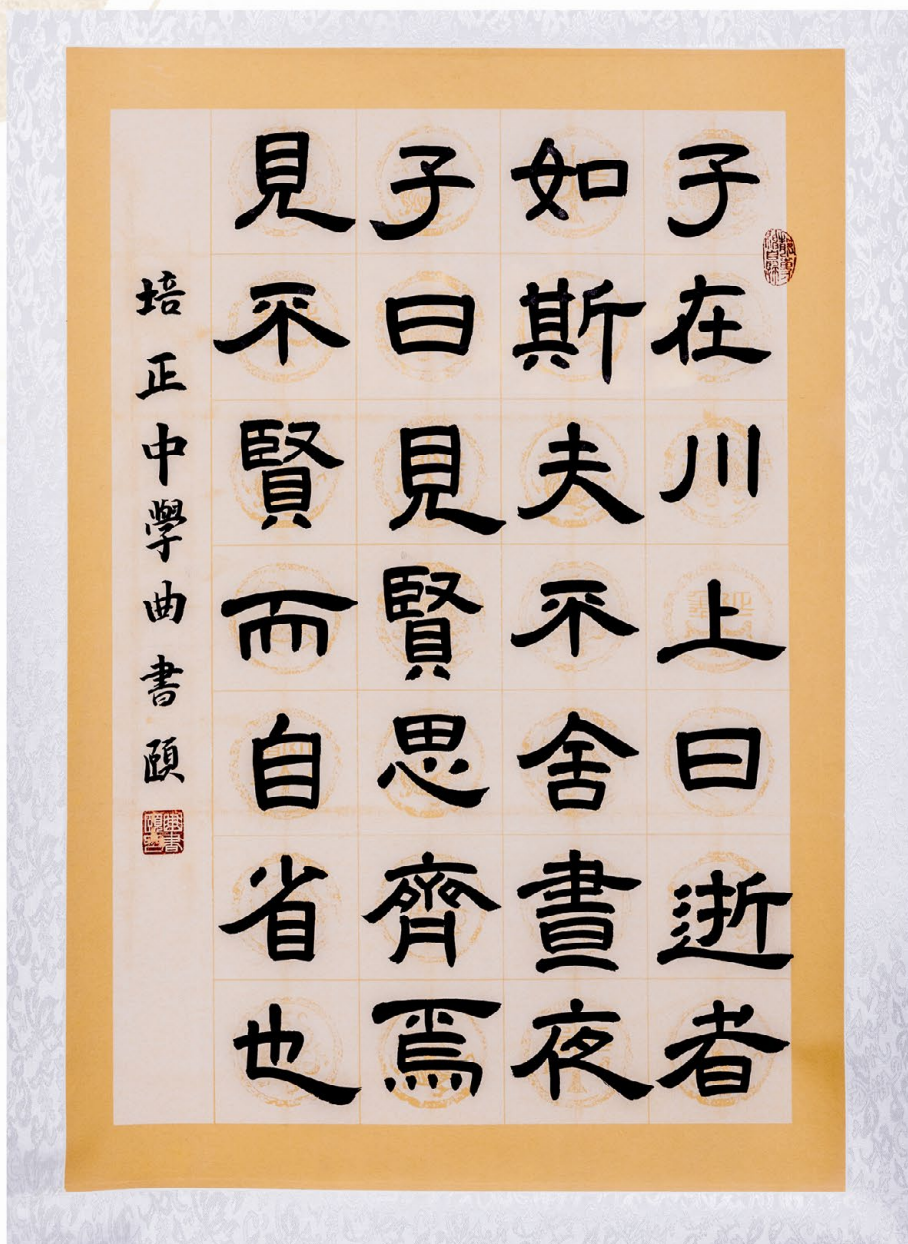 子在川上曰逝者
如斯夫不舍晝夜
子曰見賢思齊焉
見不賢而自省也
培正中學曲書頤